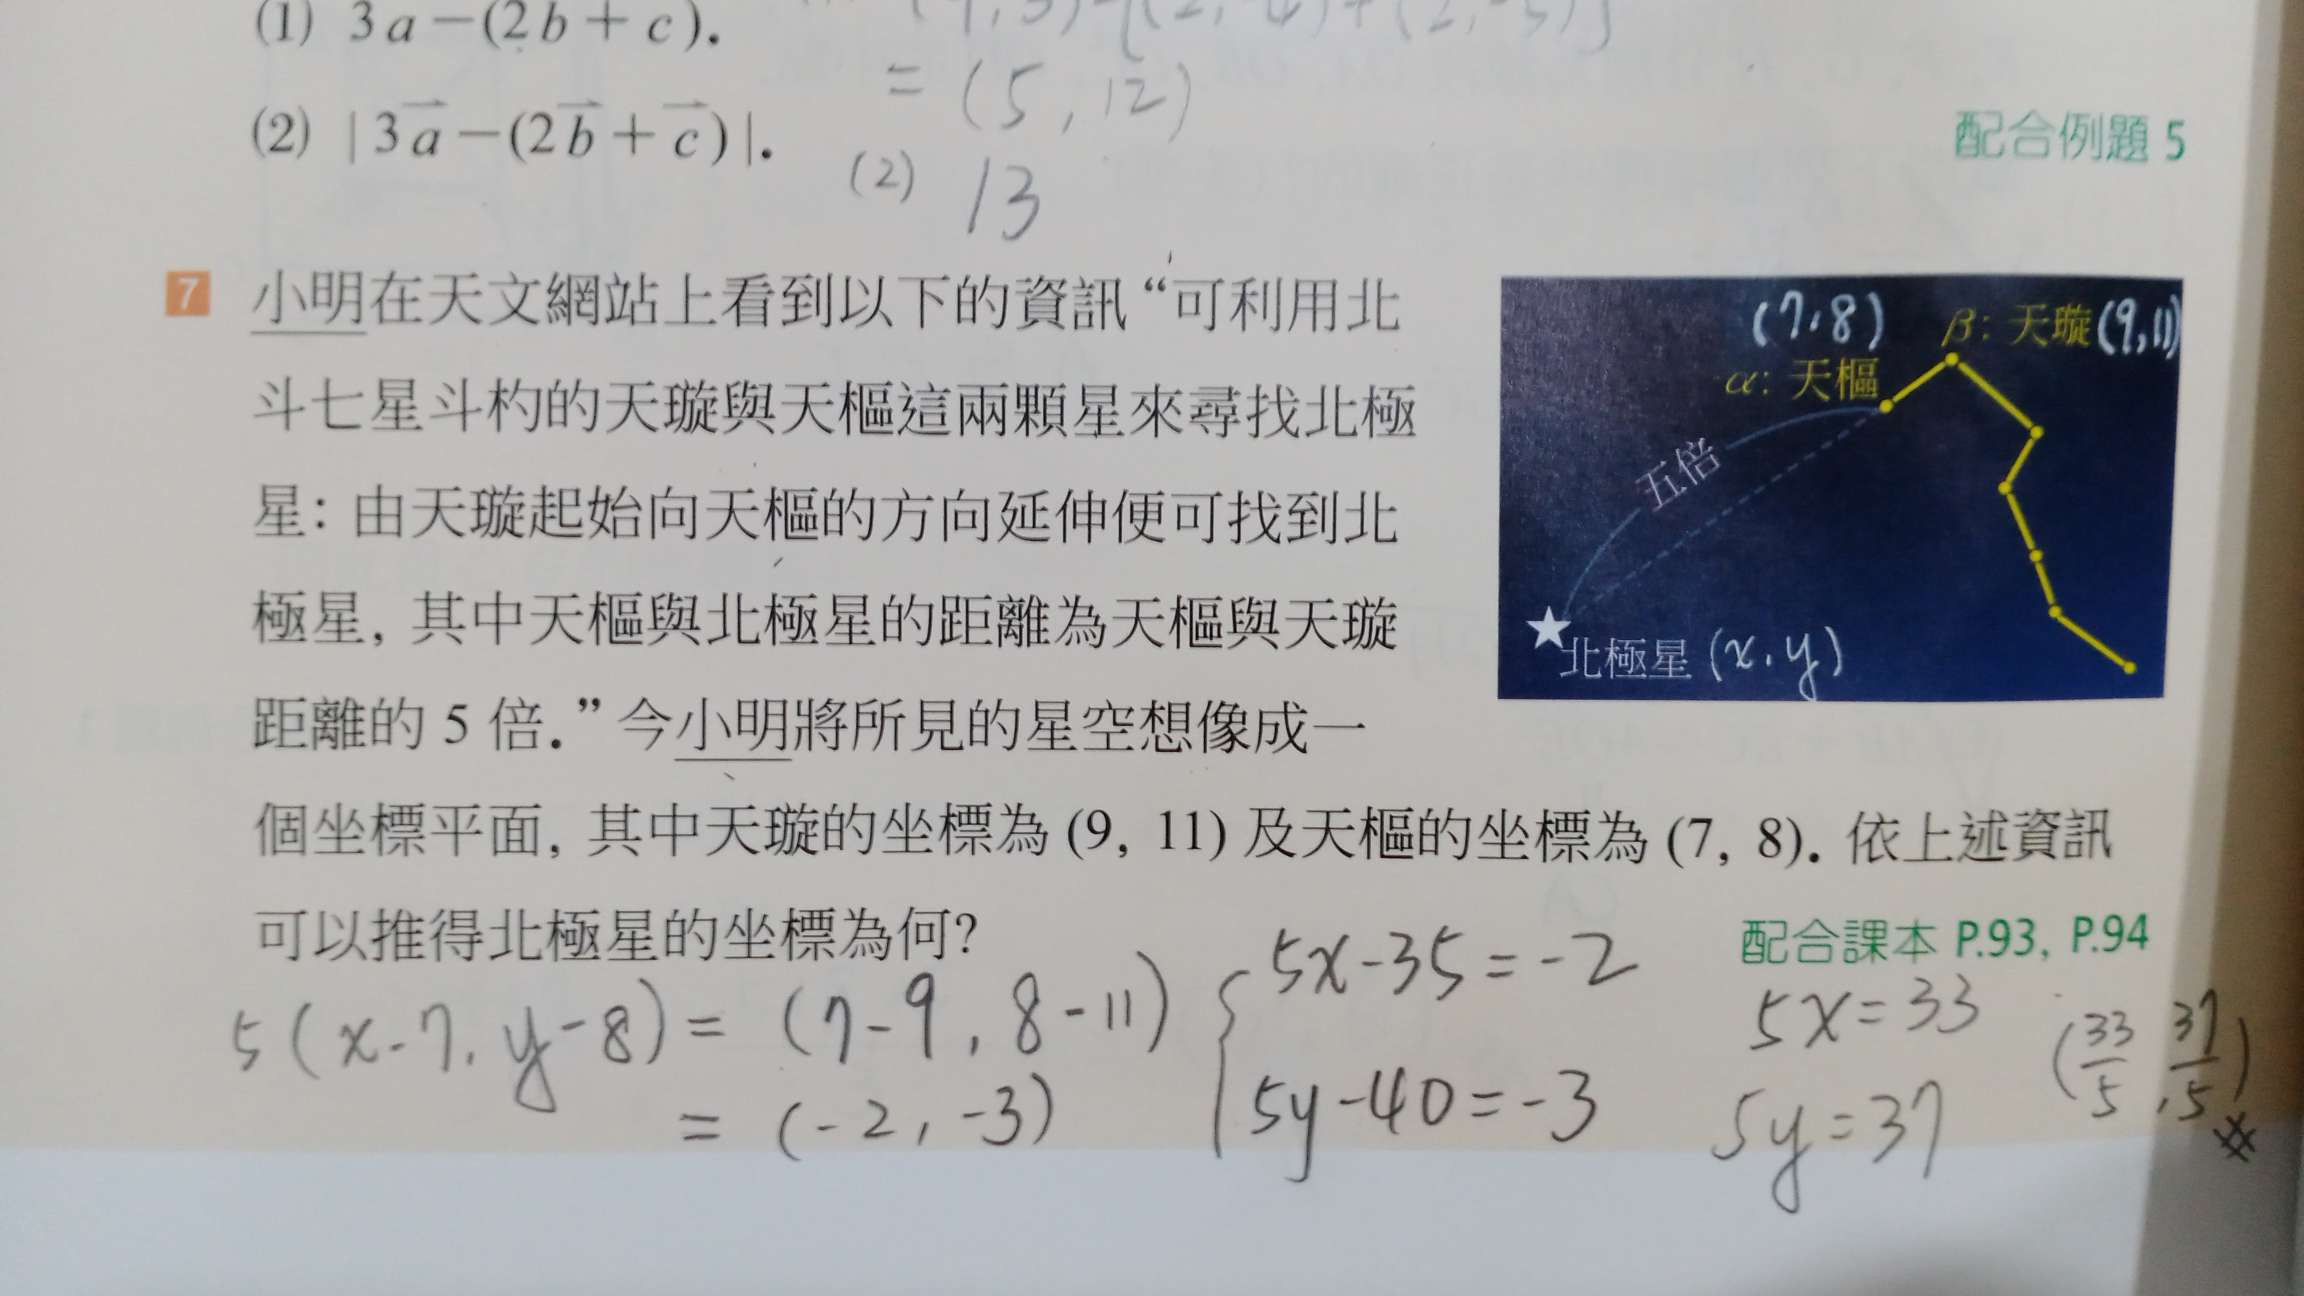 (1) 3a－(2b＋c).
= (5, 12)
(2) |3a－(2b＋c)|.
(2) 13
配合例題 5
7 小明在天文網站上看到以下的資訊“可利用北
斗七星斗杓的天璇與天樞這兩顆星來尋找北極
星: 由天璇起始向天樞的方向延伸便可找到北
極星, 其中天樞與北極星的距離為天樞與天璇
距離的 5 倍.” 今小明將所見的星空想像成一
個坐標平面, 其中天璇的坐標為 (9, 11) 及天樞的坐標為 (7, 8). 依上述資訊
可以推得北極星的坐標為何?
(7, 8)
β: 天璇 (9, 11)
α: 天樞
五倍
北極星 (x, y)
配合課本 P.93, P.94
5(x-7, y-8) = (7-9, 8-11)
= (-2, -3)
5x-35=-2
5y-40=-3
5x=33
5y=37
(33/5, 37/5)